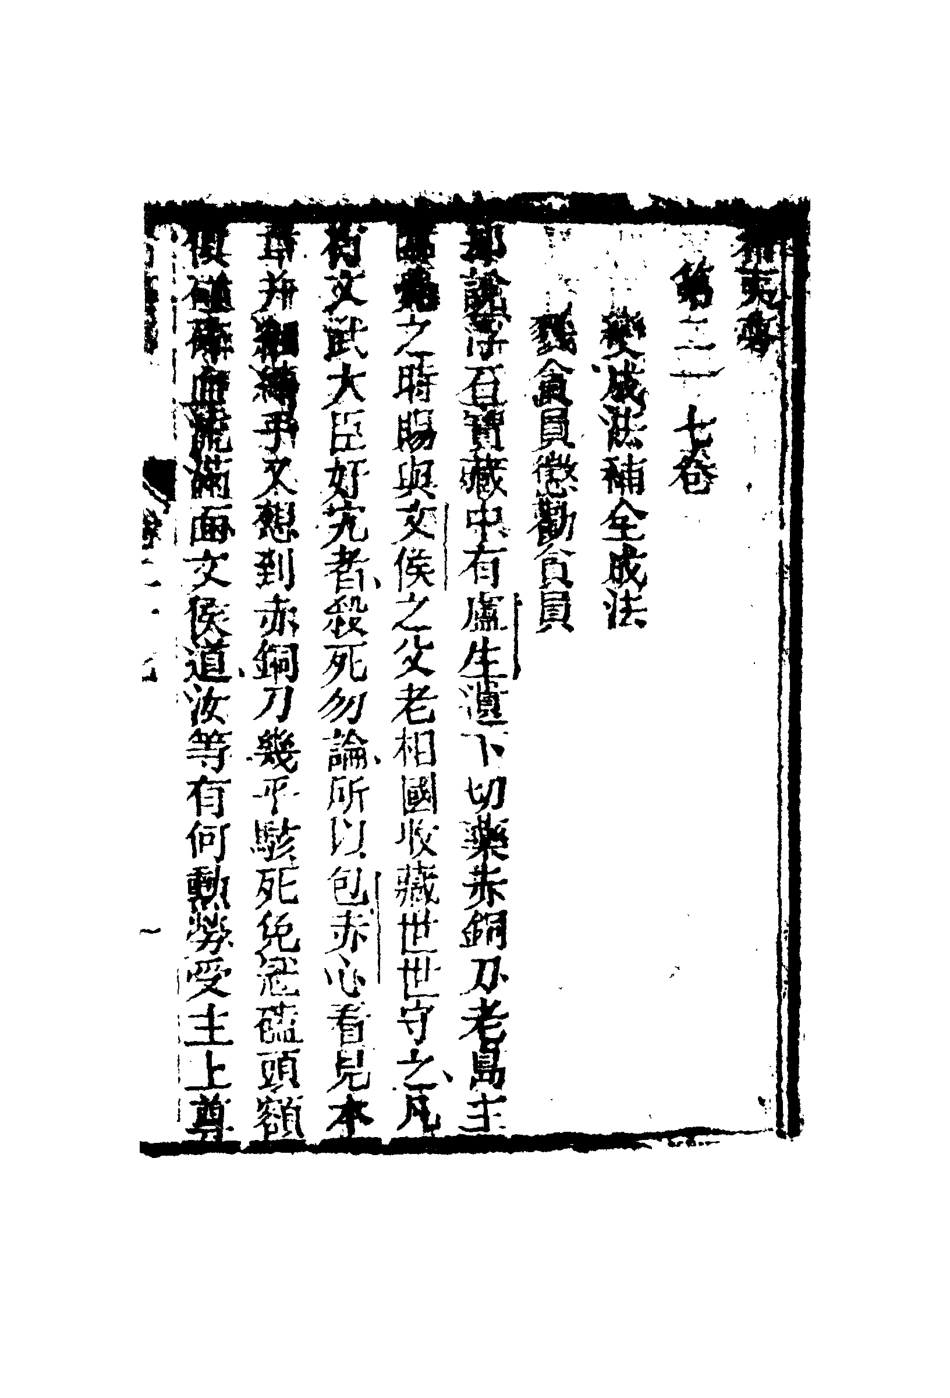 希夷夢
第二十七卷
變成法補全成法
戮貪員懲勸貪員
却說浮石寶藏中有盧生遺下切藥赤銅刀老島主
之時賜與文侯之父老相國收藏世世守之凡
有文武大臣奸宄者殺死勿論所以包赤心看見本
章并細縛乎又想到赤銅刀幾乎駭死免冠磕頭額
俱磕碎血流滿面文侯道汝等有何勲勞受主上尊